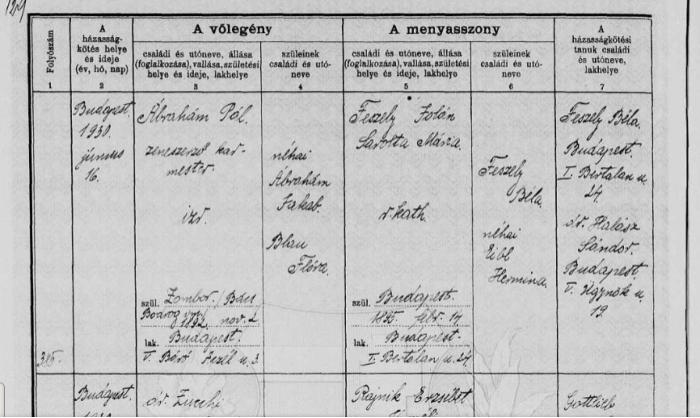 A házasság-
kötés helye
és ideje
(év, hó, nap)
A vőlegény
A menyasszony
A
házasságkötési
tanuk családi
és utóneve,
lakhelye
Folyószám
családi és utóneve, állása
(foglalkozása), vallása, születési
helye és ideje, lakhelye
szüleinek
családi és utó-
neve
családi és utóneve, állása
(foglalkozása), vallása, születési
helye és ideje, lakhelye
szüleinek
családi és utó-
neve
1
2
3
4
5
6
7
Budapest.
1930.
június
16.
Ábrahám Pál.
zeneszerző kar-
mester.
izr.
szül. Zombor, Bács
Bodrog vm.
1892. nov. 2
lak. Budapest.
V. Báró u. 3
néhai
Ábrahám
Jakab.
Blau
Flóra.
Feszely Jolán
Sarolta Mária.
r. kath.
szül. Budapest.
1895. febr. 14
lak. Budapest.
I. Bertalan u. 24.
Feszely
Béla.
néhai
Eibl
Hermina.
Feszely Béla.
Budapest.
I. Bertalan u.
24.
dr. Halász
Sándor.
Budapest.
V. Ügynök u.
19.
315.
Budapest.
dr. Zucchi
Rajnik Erzsébet
Gottlieb